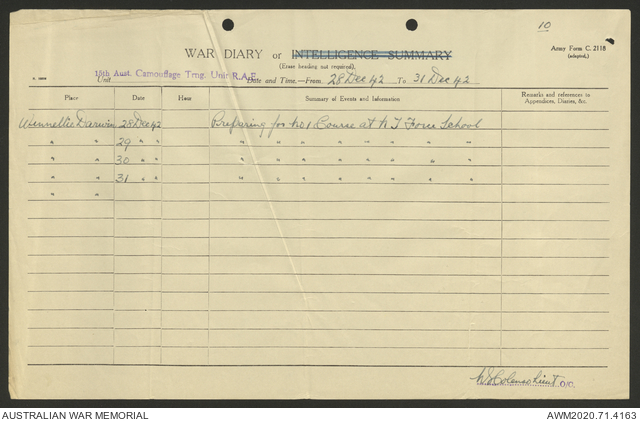 10
WAR DIARY or INTELLIGENCE SUMMARY
Army Form C. 2118
(adapted.)
(Erase heading not required).
15th Aust. Camouflage Trng. Unit R.A.E.
Unit
Date and Time.—From 28 Dec 42 To 31 Dec 42
Place Date Hour Summary of Events and Information Remarks and references to Appendices, Diaries, &c.
Winnellie Darwin 28 Dec 42 Preparing for No 1 Course at N T Force School
" " 29 " " " " " " " " " "
" " 30 " " " " " " " " " "
" " 31 " " " " " " " " " "
" "
Lieut O/C.
AUSTRALIAN WAR MEMORIAL
AWM2020.71.4163